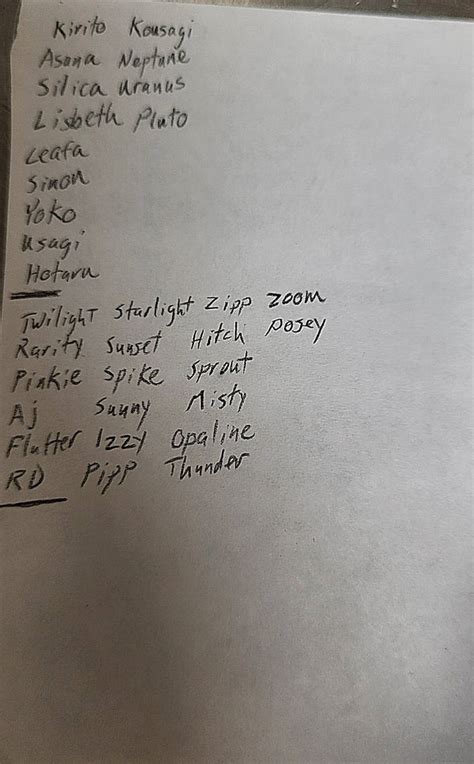 Kirito Kousagi
Asuna Neptune
Silica Uranus
Lisbeth Pluto
Leafa
Sinon
Yoko
Usagi
Hotaru
Twilight Starlight Zipp Zoom
Rarity Sunset Hitch Posey
Pinkie Spike Sprout
Aj Sunny Misty
Flutter Izzy Opaline
RD Pipp Thunder